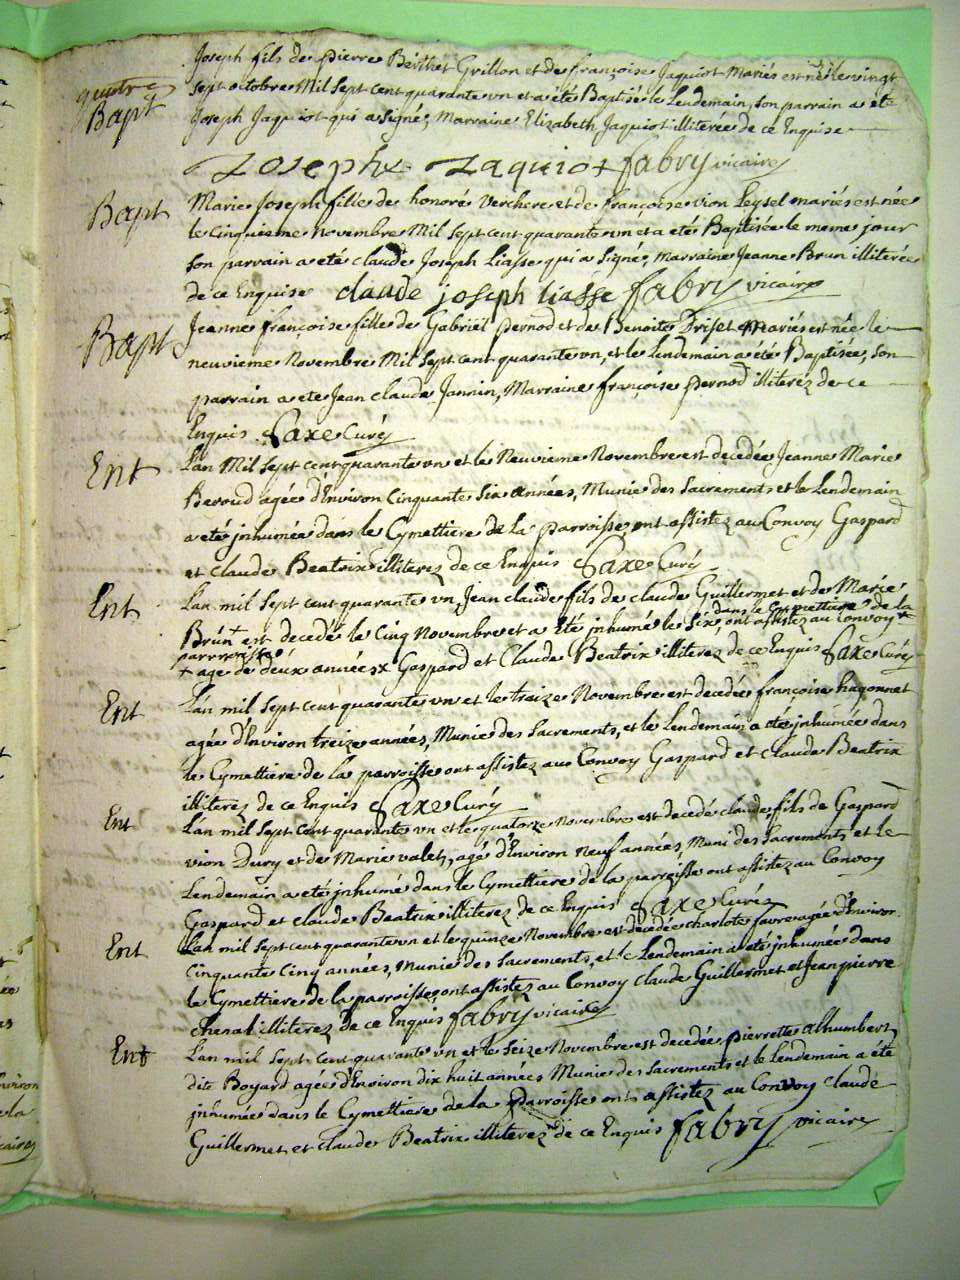 Joseph fils de pierre Berthet Grillon et de françoise Jaquiot Mariés est né le vingt
quatre
sept octobre Mil Sept cent quarante un et a été Baptisé le Lendemain, son parrain a été
Bapt
Joseph Jaquiot qui a signé, Marraine Elizabeth Jaquiot illiterée de ce Enquise
Joseph Jaquiot fabry vicaire
Bapt
Marie Joseph fille de honoré Verchere et de françoise vion Leysel mariés est née
le cinquieme Novembre Mil Sept cent quarante un et a été Baptisée le meme jour
son parrain a été claude Joseph Liasse qui a Signé, Marraine Jeanne Brun illiterée
de ce Enquise claude joseph liasse fabry vicaire
Bapt
Jeanne françoise fille de Gabriël pernod et de Benoite Friset mariés est née le
neuvieme Novembre Mil Sept cent quarante un, et le Lendemain a été Baptisée, son
parrain a ete Jean claude Jannin, Marraine françoise pernod illiterez de ce
Enquis Saxe Curé
Ent
Lan Mil Sept cent quarante un et le Neuvieme Novembre est decedée Jeanne Marie
Beroud agée d'Environ Cinquante Six années, Munie des Sacrements et le Lendemain
a été jnhumée dans le Cymettiere de la parroisse, ont assistez au Convoy Gaspard
et Claude Beatrix illiterez de ce Enquis Saxe Curé
Ent
Lan mil Sept cent quarante un Jean claude fils de claude Guillermet et de Marie
dans le Cymettiere de la
Brun + est decedé le Cinq Novembre et a été jnhumé le Six, ont assistez au Convoy +
parrroisse
+ age de deux années x Gaspard et Claude Beatrix illiterez de ce Enquis Saxe Curé
Ent
Lan mil Sept cent quarante un et le treize Novembre est decedée françoise hugonnet
agée d'Environ treize années, Munie des Sacrements, et le Lendemain a été jnhumée dans
le Cymettiere de la parroisse ont assistez au Convoy Gaspard et Claude Beatrix
illiterez de ce Enquis Saxe Curé
Ent
Lan mil Sept Cent quarante un et le quatorze Novembre est decedé claude fils de Gaspard
vion Dury et de Marie valet, agé d'Environ neuf années, Muni des Sacrements et le
Lendemain a été jnhumé dans le Cymettiere de la parroisse ont assistez au Convoy
Gaspard et claude Beatrix illiterez de ce Enquis Saxe Curé
Ent
Lan mil Sept cent quarante un et le quinze Novembre est decedée charlote favre agée d'Environ
Cinquante Cinq années, Munie des Sacrements, et le Lendemain a été jnhumée dans
le Cymettiere de la parroisse, ont assistez au Convoy Claude Guillermet et Jean pierre
cheval illiterez de ce Enquis fabry vicaire
Ent
Lan mil Sept cent quarante un et le Seize Novembre est decedée pierrette alhumbert
dite Boyard agée d'Environ dix huit années Munie des Sacrements et le Lendemain a été
jnhumée dans le Cymettiere de la Parroisse ont assistez au Convoy Claude
Guillermet et claude Beatrix illiterez de ce Enquis fabry vicaire